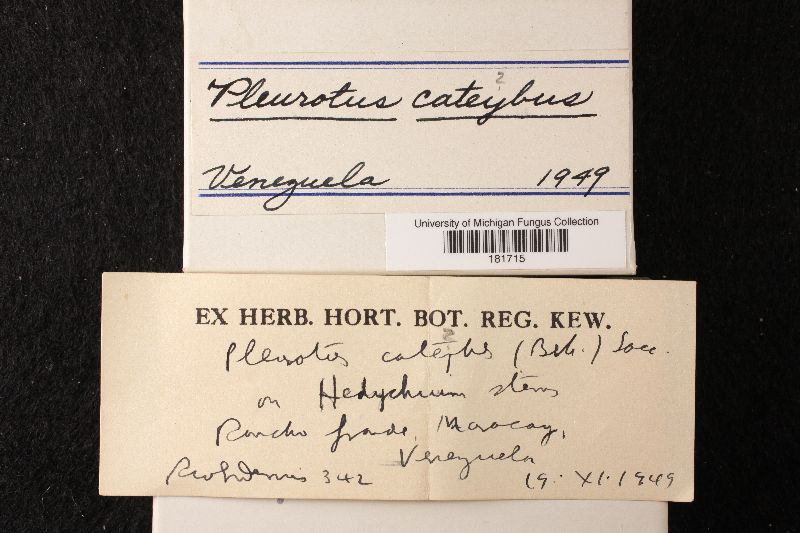 2
Pleurotus cateybus
Venezuela 1949
University of Michigan Fungus Collection
181715
EX HERB. HORT. BOT. REG. KEW.
2
Pleurotus (Berk.) Sacc.
on Hedychium stems
Rancho Grande, Maracay,
Venezuela
342 19. XI. 1949